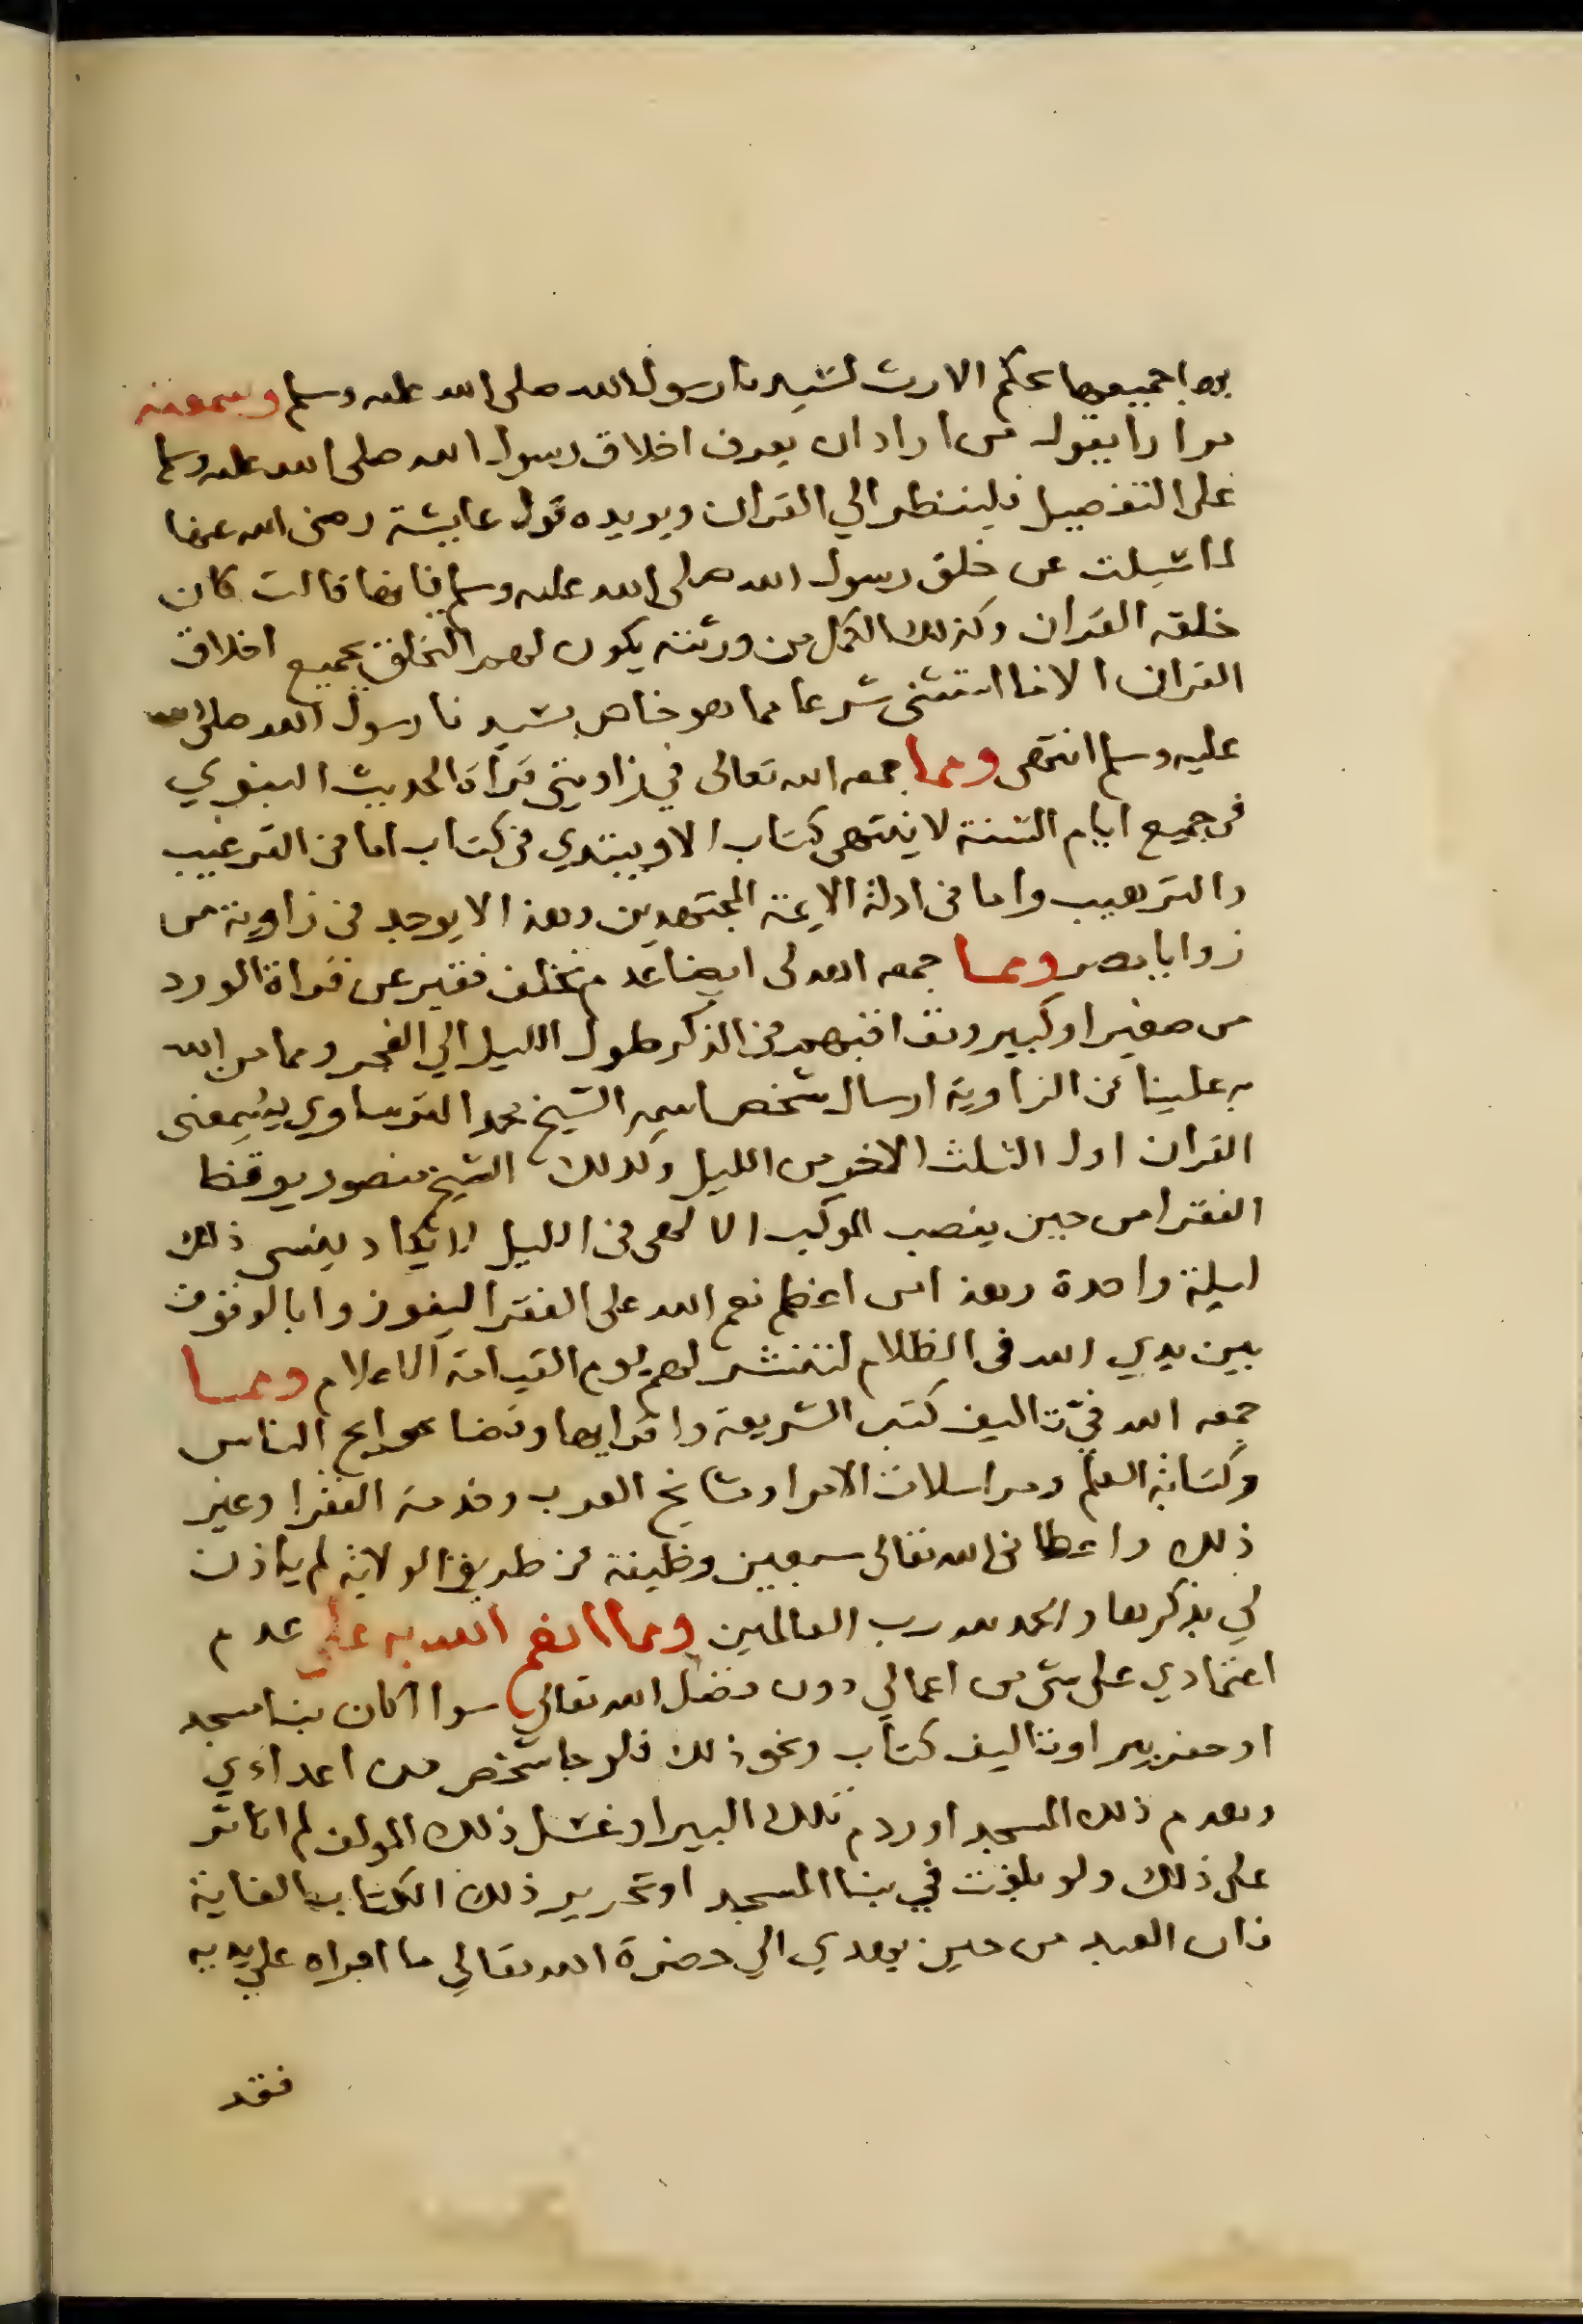 بها جميعها بحكم الارث لسيدنا رسول الله صلى الله عليه وسلم وسمعته
مرارا يقول من اراد ان يعرف اخلاق رسول الله صلى الله عليه وسلم
على التفصيل فلينظر الي القران ويويده قول عايشة رضى الله عنها
لما سيلت عن خلق رسول الله صلى الله عليه وسلم فانها قالت كان
خلقه القران وكذلك الكمل من ورثته يكون لهم التخلق بجميع اخلاق
القران الا ما استثنى شرعا مما هو خاص بسيدنا رسول الله صلى الله
عليه وسلم انتهى ومما جمعه الله تعالى في زاويتي قراة الحديث النبوي
في جميع ايام السنة لا ينتهى كتاب الا ويبتدي في كتاب اما في الترغيب
والترهيب واما في ادلة الايمة المجتهدين وهذا لا يوجد في زاوية من
زوايا مصر ومما جمعه الله لى ايضا عدم تخلف فقير عن قراة الورد
من صغير او كبير وتناقبهم في الذكر طول الليل الي الفجر ومما من الله
به علينا في الزاوية ارسال شخص اسمه الشيخ محمد القرساوي يسمعنى
القران اول الثلث الاخر من الليل وكذلك الشيخ منصور يوقظ
الفقرا من حين ينصب الموكب الالهى في الليل لا يكاد ينسى ذلك
ليلة واحدة وهذا من اعظم نعم الله على الفقرا ليفوزوا بالوقوف
بين يدي الله في الظلام لتنتشر لهم يوم القيامة الاعلام ومما
جمعه الله فيّ تاليف كتب الشريعة واقرايها وقضا حوايج الناس
وكتابة العلم ومراسلات الامرا ومشايخ العرب وخدمة الفقرا وغير
ذلك واعطانى الله تعالى سبعين وظيفة من طريق الولاية لم ياذن
لي بذكرها والحمد لله رب العالمين ومما انعم الله به علي عدم
اعتمادي على شي من اعمالي دون فضل الله تعالي سوا اكان بنا مسجد
او حفر بير او تاليف كتاب ونحو ذلك فلو جا شخص من اعداءي
وهدم ذلك المسجد او ردم تلك البير او غسل ذلك المولف لم اتاثر
على ذلك ولو بلغت في بنا المسجد او تحرير ذلك الكتاب الغاية
فان العبد من حين يهدي الي حضرة الله تعالي ما اجراه على يديه
فقد